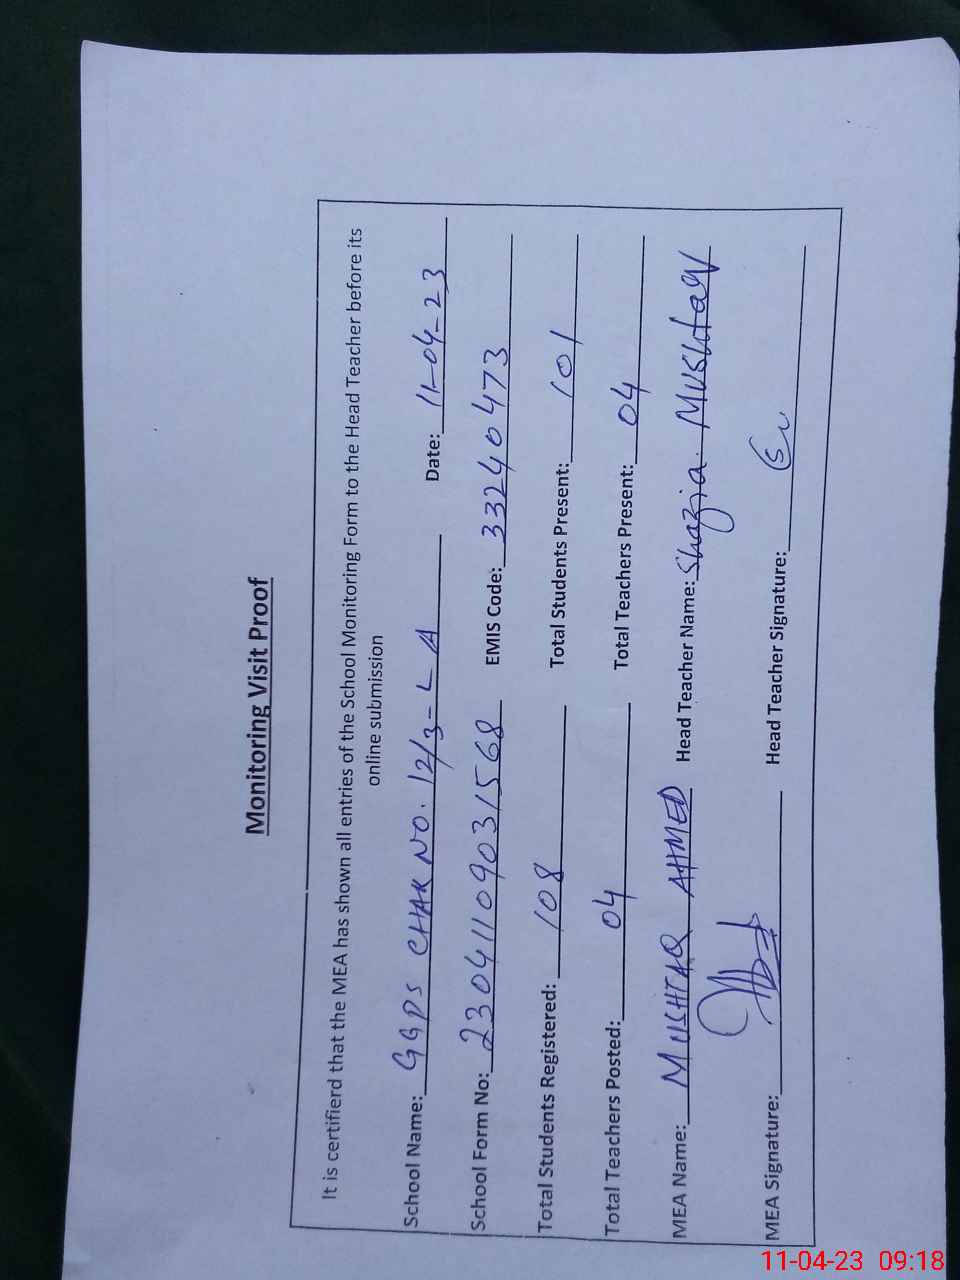 Monitoring Visit Proof
It is certifierd that the MEA has shown all entries of the School Monitoring Form to the Head Teacher before its
online submission
School Name: GGPS CHAK NO. 12/3-L A Date: 11-04-23
School Form No: 23041109031568 EMIS Code: 33240473
Total Students Registered: 108 Total Students Present: 101
Total Teachers Posted: 04 Total Teachers Present: 04
MEA Name: MUSHTAQ AHMED Head Teacher Name: Shazia MUSHtaq
MEA Signature: Head Teacher Signature:
11-04-23 09:18